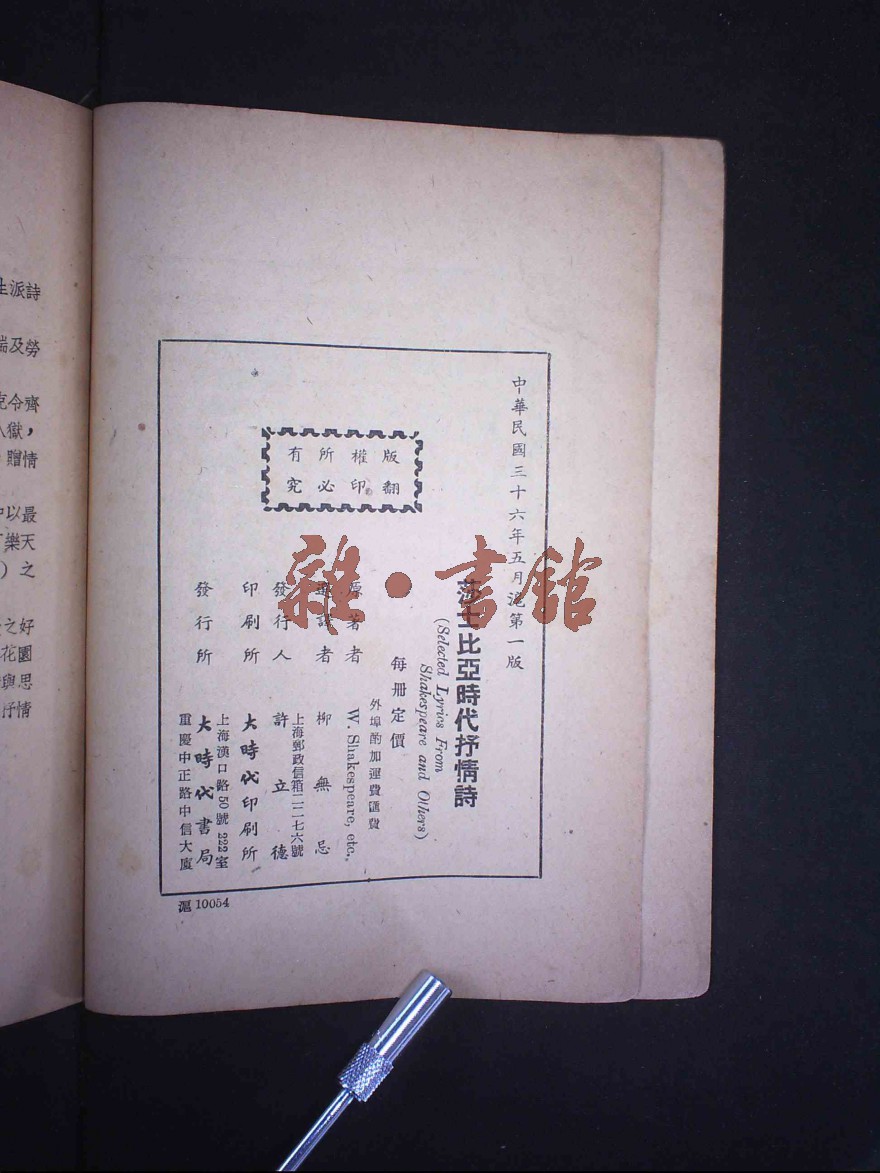 中華民國三十六年五月滬第一版
版權所有
翻印必究
莎士比亞時代抒情詩
(Selected Lyrics From
Shakespeare and Others)
每冊定價
外埠酌加運費匯費
原著者 W. Shakespeare, etc.,
選譯者 柳無忌
發行人 許立德
上海郵政信箱二二七六號
印刷所 大時代印刷所
發行所 大時代書局
上海漢口路50號222室
重慶中正路中信大廈
滬 10054
雜·書館
生派詩
端及勞
克令齊
入獄，
贈情
中以最
樂天
）之
之好
花園
與思
抒情